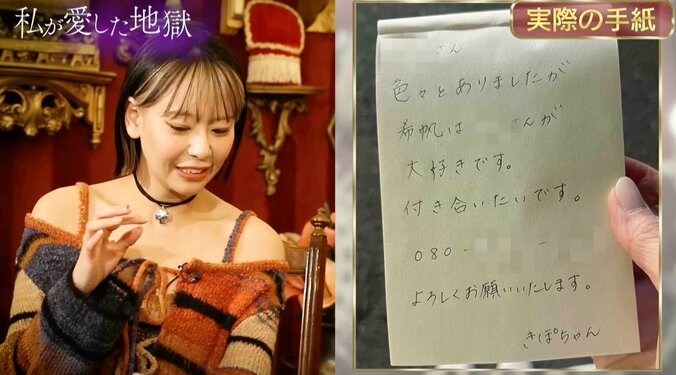 私が愛した地獄
実際の手紙
さん
色々とありましたが
希帆は さんが
大好きです。
付き合いたいです。
080- -
よろしくお願いいたします。
きぽちゃん